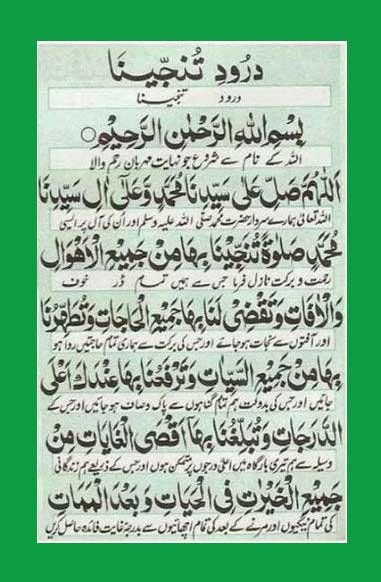 درُودِ تُنَجِّینَا
درود تنجینا
بِسْمِ اللهِ الرَّحْمٰنِ الرَّحِیْمِ○
اللہ کے نام سے شروع جو نہایت مہربان رحم والا
اَللّٰهُمَّ صَلِّ عَلٰی سَیِّدِنَا مُحَمَّدٍ وَّعَلٰٓی اٰلِ سَیِّدِنَا
اللہ تعالٰی ہمارے سردار حضرت محمد صلی اللہ علیہ وسلم اور اُن کی آل پر ایسی
مُحَمَّدٍ صَلٰوةً تُنَجِّیْنَا بِهَا مِنْ جَمِیْعِ الْاَهْوَالِ
رحمت و برکت نازل فرما جس سے ہمیں تمام ڈر خوف
وَالْاٰفَاتِ وَتَقْضِیْ لَنَا بِهَا جَمِیْعَ الْحَاجَاتِ وَتُطَهِّرُنَا
اور آفتوں سے نجات ہوجائے اور جس کی برکت سے ہماری تمام حاجتیں روا ہو
بِهَا مِنْ جَمِیْعِ السَّیِّاٰتِ وَتَرْفَعُنَا بِهَا عِنْدَكَ اَعْلَی
جائیں اور جس کی بدولت ہم تمام گناہوں سے پاک وصاف ہو جائیں اور جس کے
الدَّرَجَاتِ وَتُبَلِّغُنَا بِهَآ اَقْصَی الْغَایَاتِ مِنْ
وسیلہ سے ہم تیری بارگاہ میں اعلٰی درجوں پر متمکن ہوں اور جس کے ذریعے ہم زندگانی
جَمِیْعِ الْخَیْرٰتِ فِی الْحَیَاتِ وَبَعْدَ الْمَمَاتِ
کی تمام نیکیوں اور مرنے کے بعد کی تمام اچھائیوں سے بدرجہ غایت فائدہ حاصل کریں